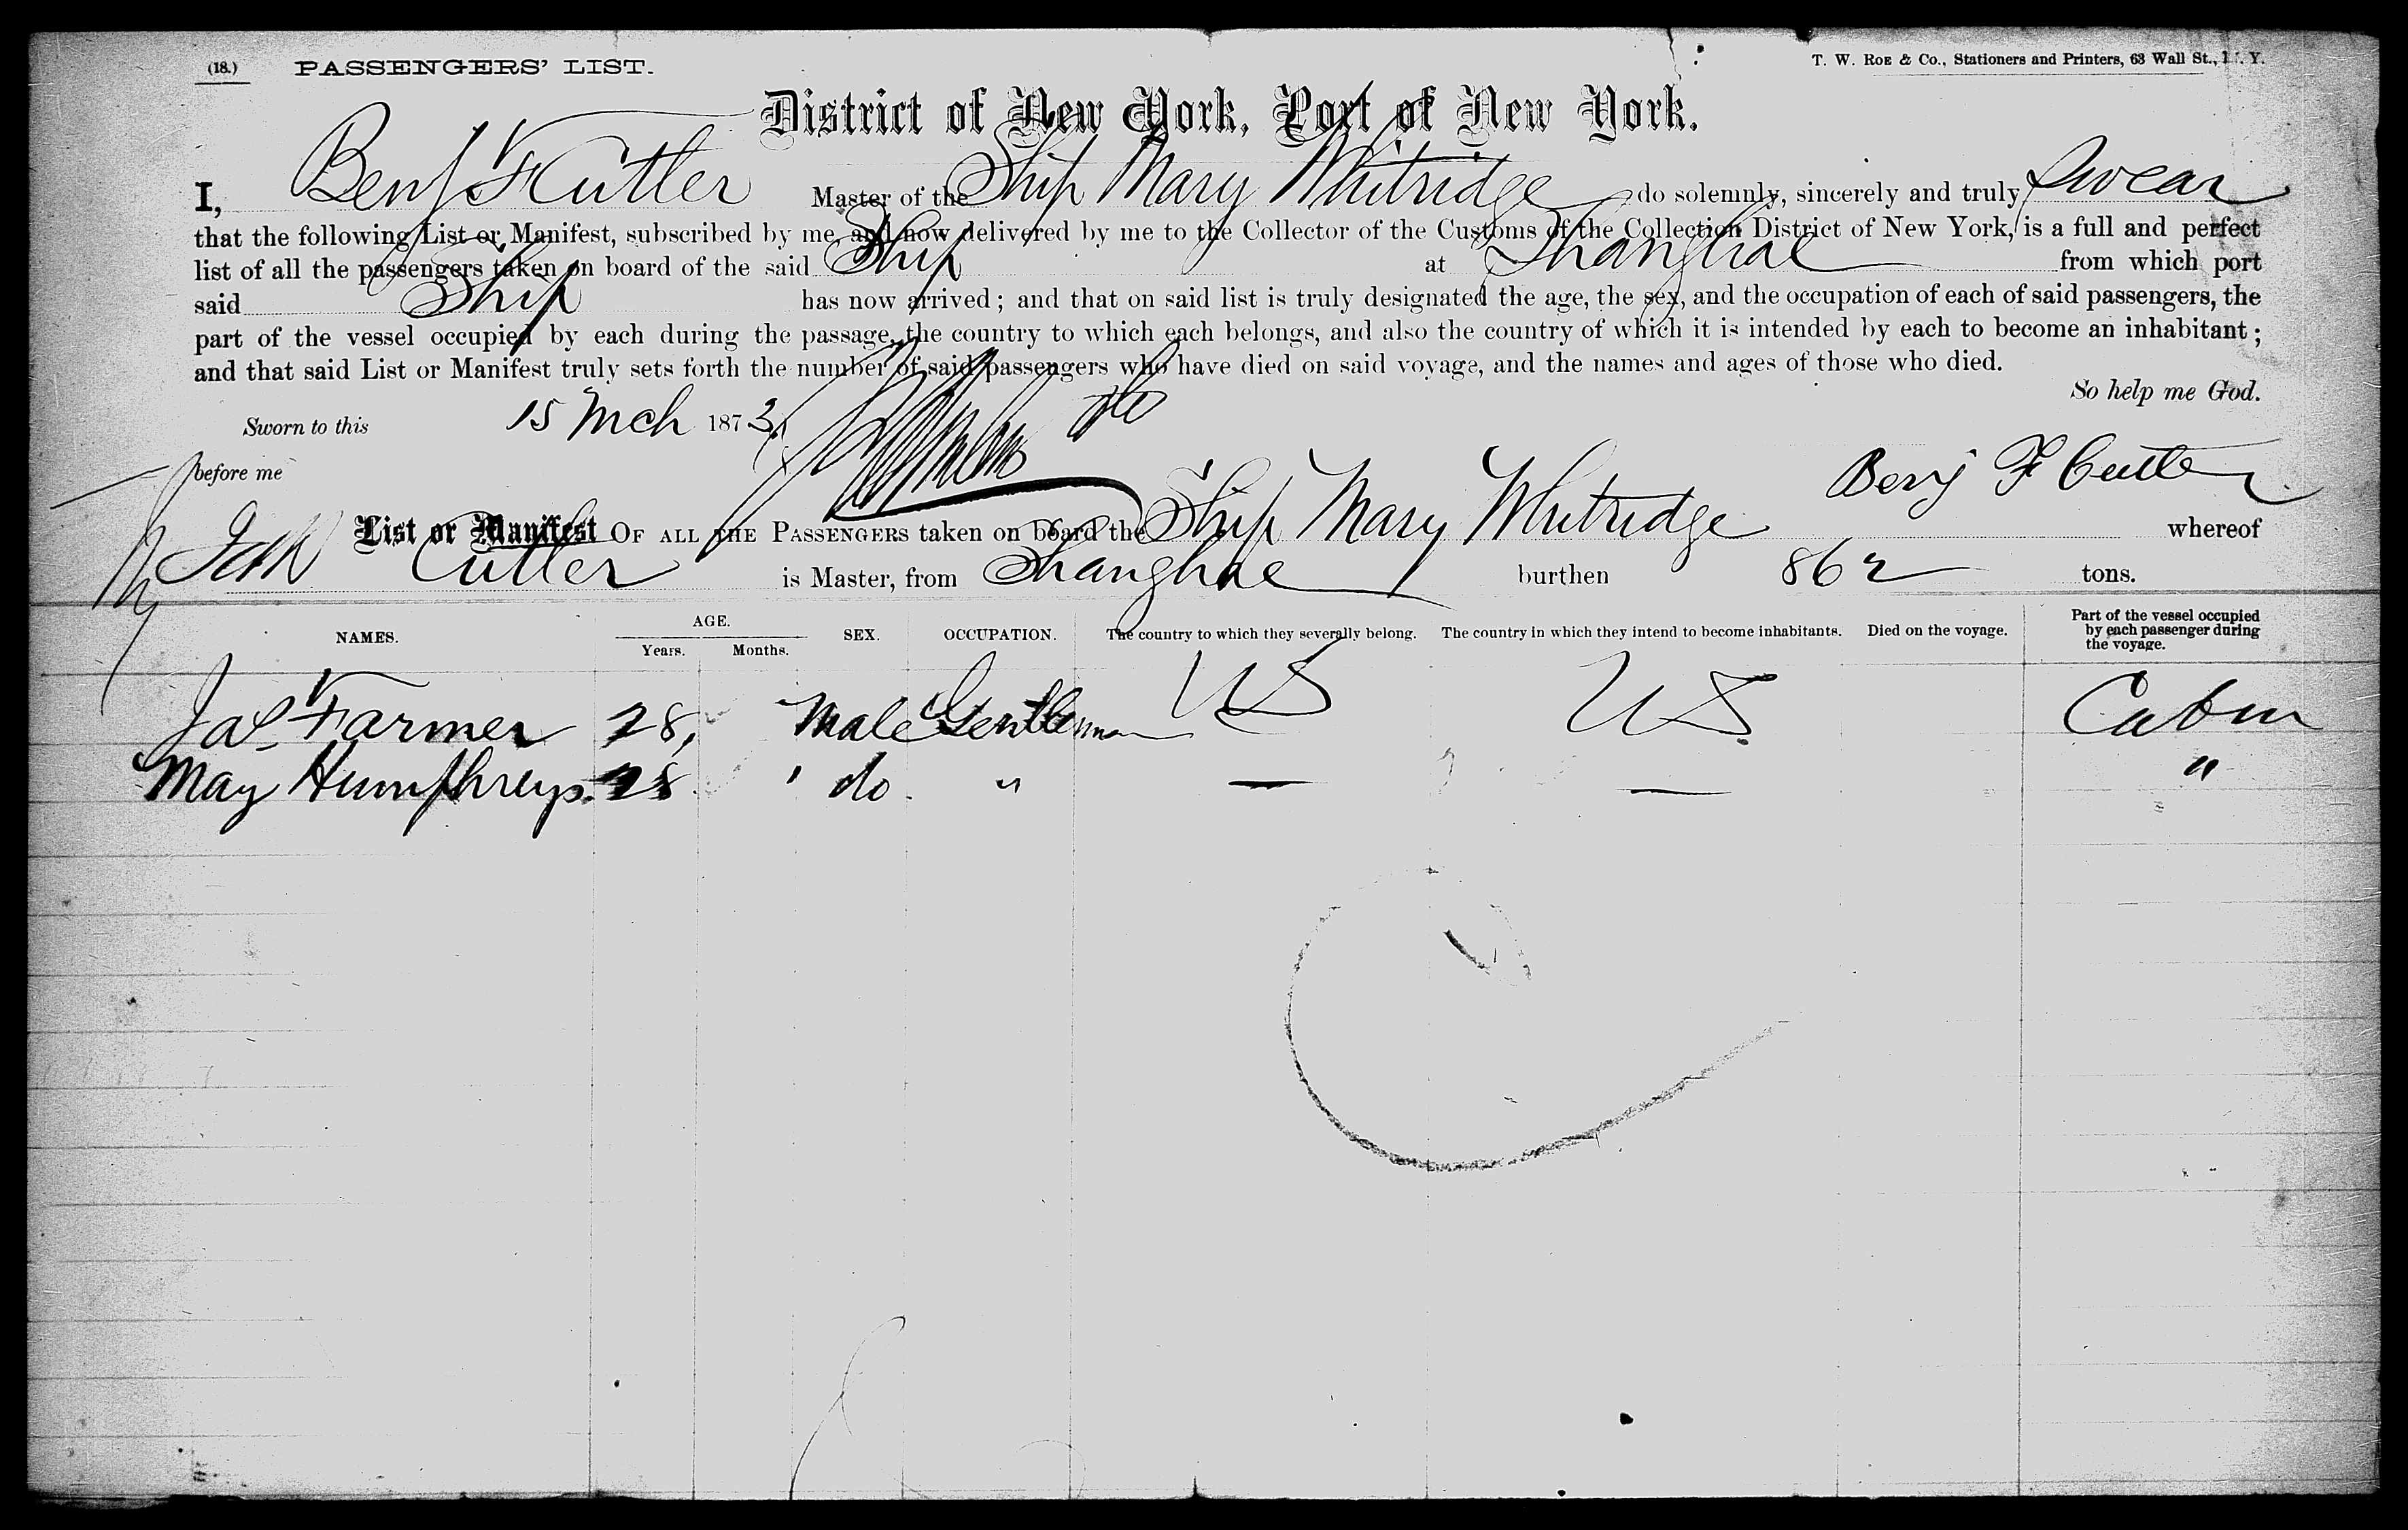 (18.) PASSENGERS' LIST. T. W. ROE & CO., Stationers and Printers, 63 Wall St., N. Y.
District of New York, Port of New York.
I, Benj F Cutler Master of the Ship Mary Whitridge do solemnly, sincerely and truly Swear
that the following List or Manifest, subscribed by me, and now delivered by me to the Collector of the Customs of the Collection District of New York, is a full and perfect
list of all the passengers taken on board of the said Ship at Shanghae from which port
said Ship has now arrived; and that on said list is truly designated the age, the sex, and the occupation of each of said passengers, the
part of the vessel occupied by each during the passage, the country to which each belongs, and also the country of which it is intended by each to become an inhabitant;
and that said List or Manifest truly sets forth the number of said passengers who have died on said voyage, and the names and ages of those who died.
So help me God.
Sworn to this 15 Mch 1873
before me Benj F Cutler
List or Manifest OF ALL THE PASSENGERS taken on board the Ship Mary Whitridge whereof
Cutler is Master, from Shanghae burthen 862 tons.
NAMES. AGE. Years. Months. SEX. OCCUPATION. The country to which they severally belong. The country in which they intend to become inhabitants. Died on the voyage. Part of the vessel occupied by each passenger during the voyage.
Jas Farmer 28, Male Gentleman U S U S. Cabin
May Humphreys. 28 do. " — — "